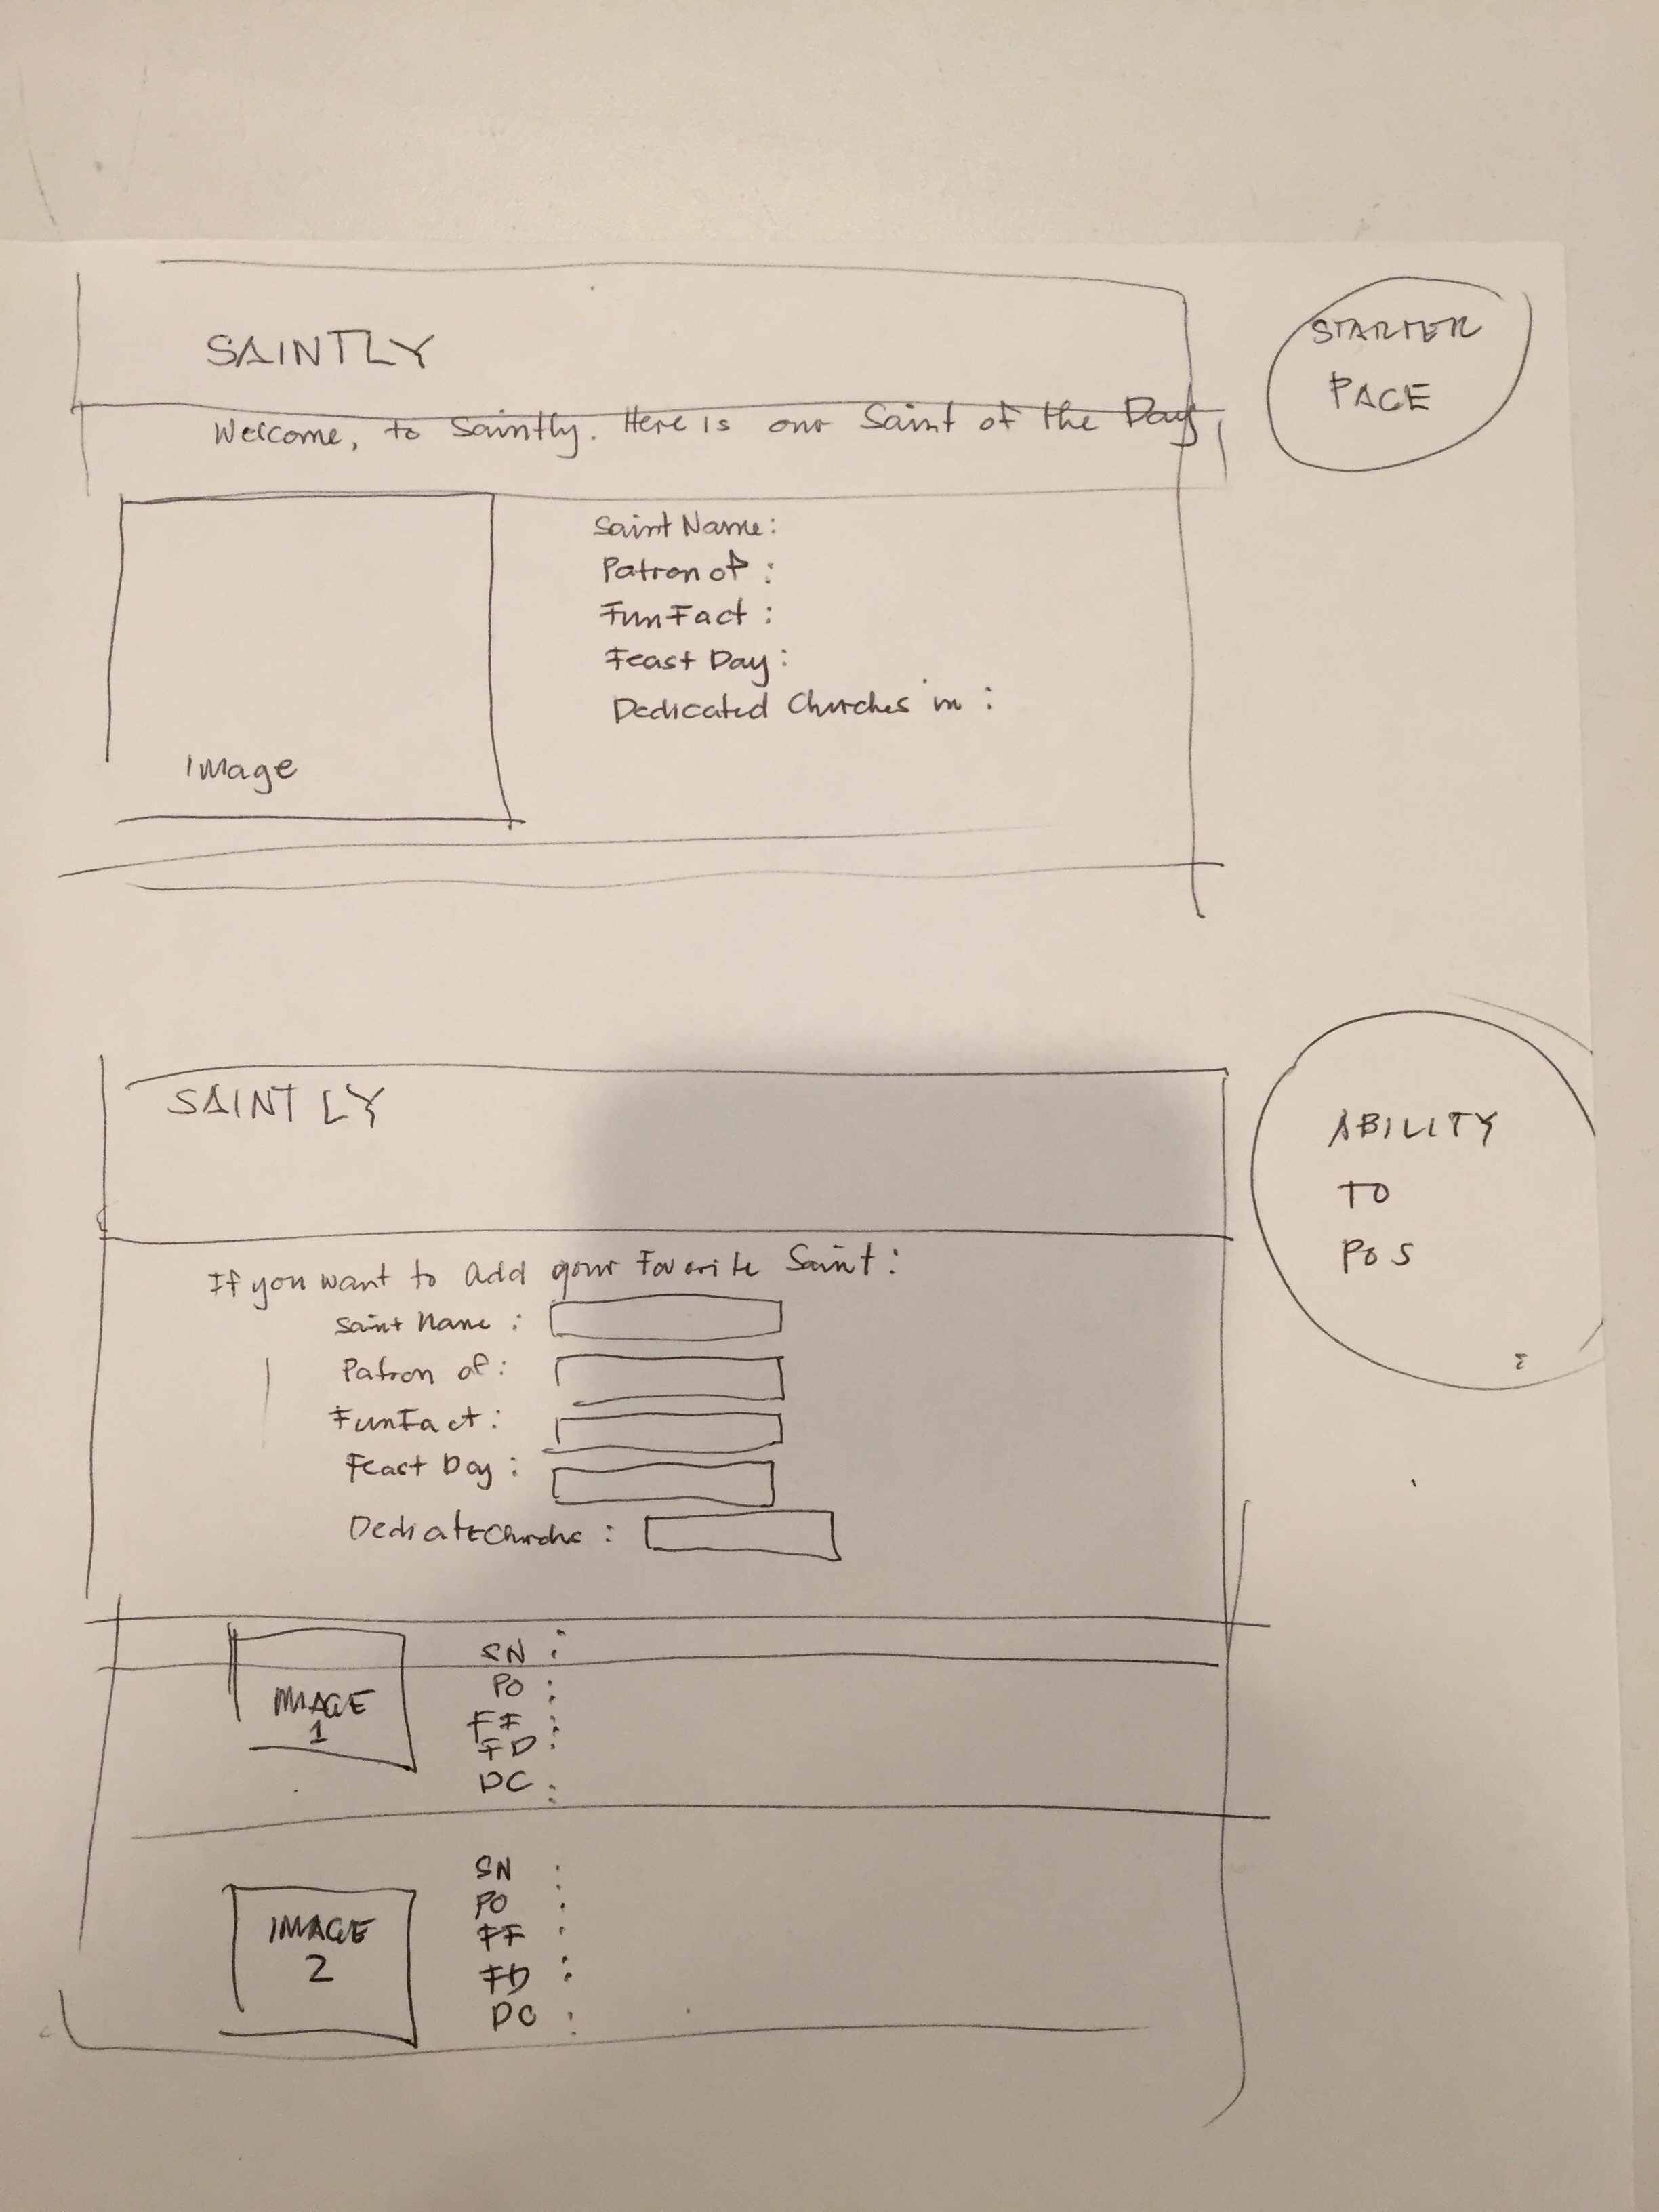 SAINTLY
STARTER
PAGE
Welcome, to Saintly. Here is our Saint of the Day
Saint Name:
Patron of :
Fun Fact :
Feast Day :
Dedicated Churches in :
Image
SAINTLY
ABILITY
TO
POS
If you want to add your Favorite Saint:
Saint Name :
Patron of :
FunFact :
Feast Day :
Dedicate Churches :
IMAGE
1
SN :
PO :
FF :
FD :
DC :
IMAGE
2
SN :
PO :
FF :
FD :
DC :